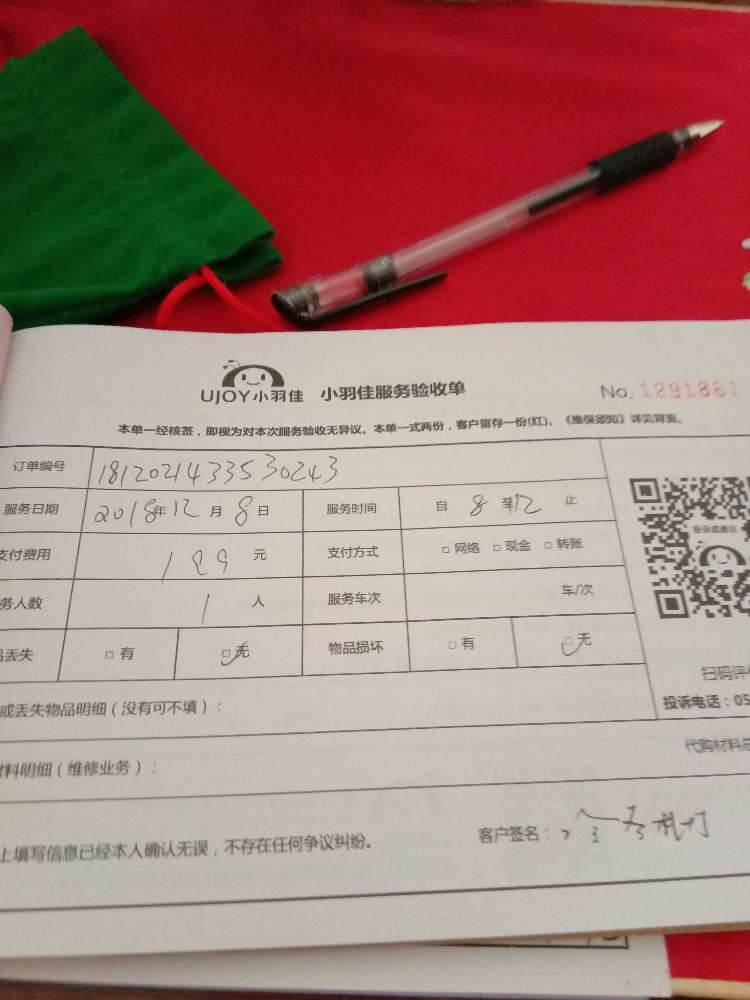 UJOY小羽佳 小羽佳服务验收单 No. 1291861
本单一经核签，即视为对本次服务验收无异议。本单一式两份，客户留存一份(红)。《维保须知》详见背面。
订单编号 181202143353 0243
服务日期 2018年12月8日 服务时间 自 8 至12 止
支付费用 199 元 支付方式 □ 网络 □ 现金 □ 转账
务人数 1 人 服务车次 车/次
品丢失 □ 有 □ 无 物品损坏 □ 有 □ 无
投诉或建议
扫码评价
投诉电话：05
或丢失物品明细（没有可不填）：
材料明细（维修业务）： 代购材料总
上填写信息已经本人确认无误，不存在任何争议纠纷。 客户签名：